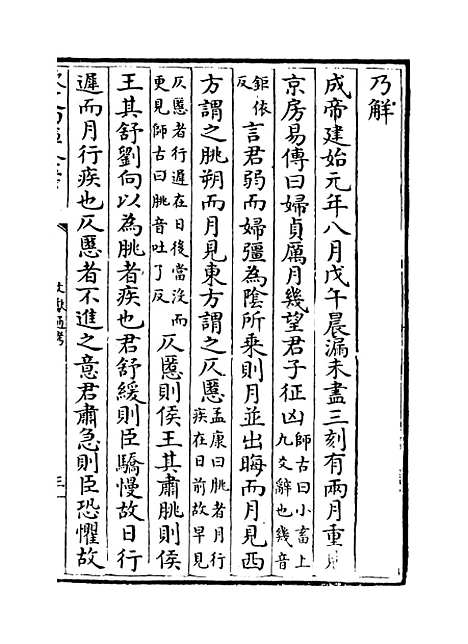 乃解
成帝建始元年八月戊午晨漏未盡三刻有兩月重見
京房易傳曰婦貞厲月幾望君子征凶師古曰小畜上九爻辭也幾音
鉅依反言君弱而婦彊為陰所乘則月並出晦而月見西
方謂之朓朔而月見東方謂之仄慝孟康曰朓者月行疾在日前故早見
仄慝者行遲在日後當沒而更見師古曰朓音吐了反仄慝則侯王其肅朓則侯
王其舒劉向以為朓者疾也君舒緩則臣驕慢故日行
遲而月行疾也仄慝者不進之意君肅急則臣恐懼故
文獻通考